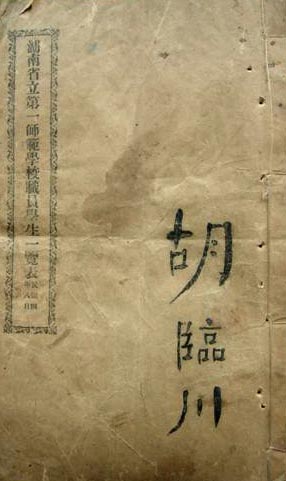 胡臨川
湖南省立第一師範學校職員學生一覽表